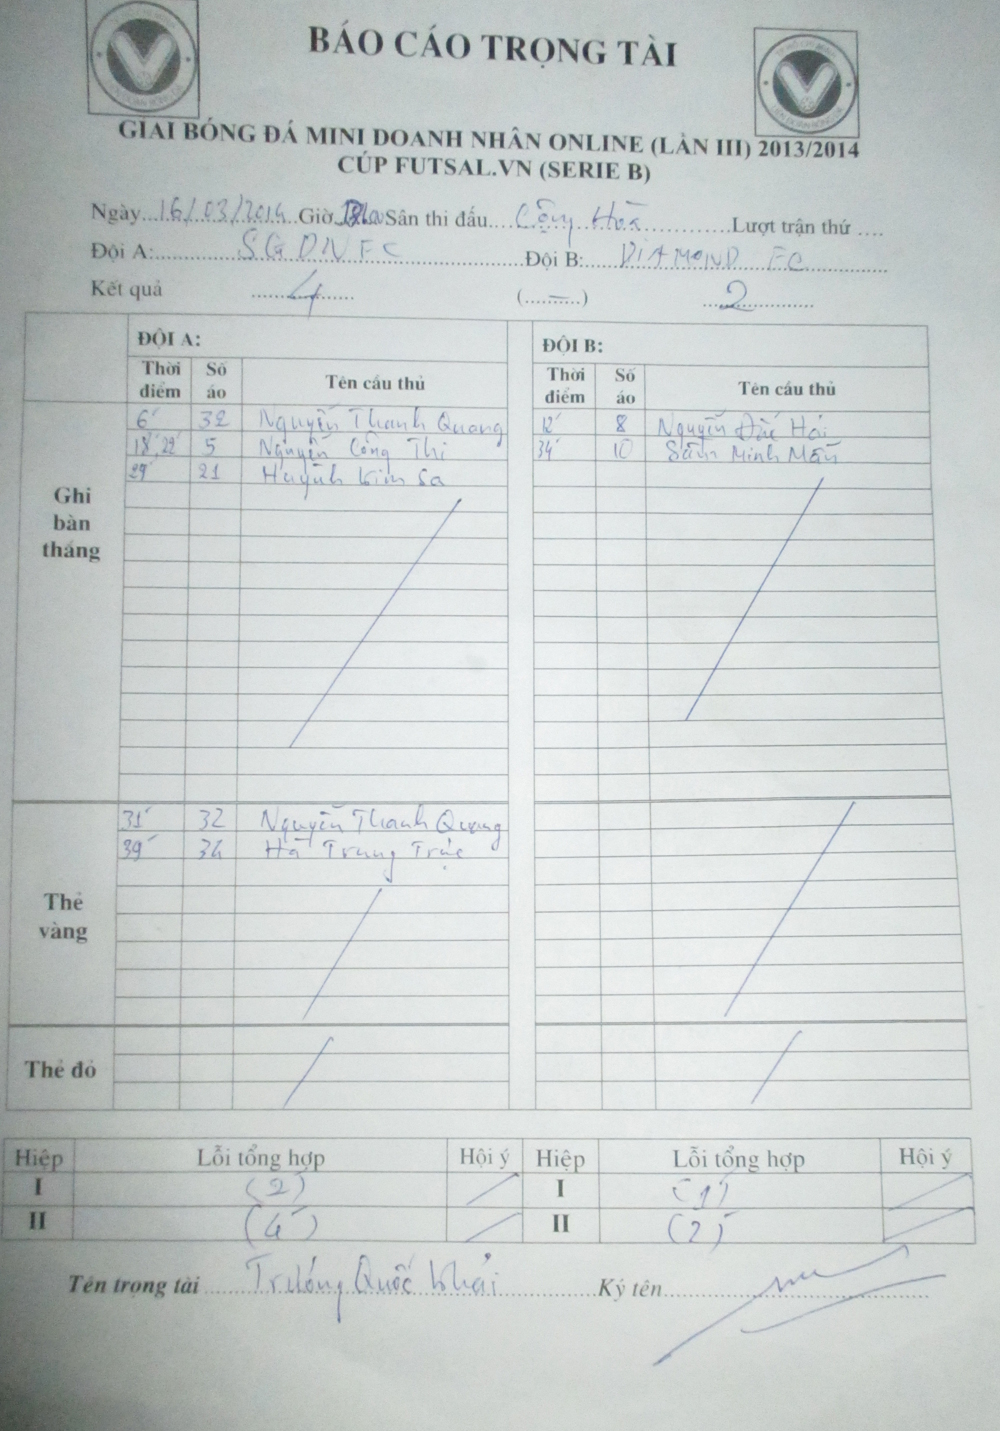 BÁO CÁO TRỌNG TÀI
GIẢI BÓNG ĐÁ MINI DOANH NHÂN ONLINE (LẦN III) 2013/2014
CÚP FUTSAL.VN (SERIE B)
Ngày...16/03/2014.Giờ Sân thi đấu....Cộng Hoà............Lượt trận thứ ....
Đội A:............SGDNFC....................Đội B:......DIAMOND FC............
Kết quả ........4........ (.....–.....) ........2........
ĐỘI A: ĐỘI B:
Thời điểm Số áo Tên cầu thủ Thời điểm Số áo Tên cầu thủ
Ghi bàn thắng
6' 32 Nguyễn Thanh Quang 12' 8 Nguyễn Đức Hải
18', 22' 5 Nguyễn Công Thi 34' 10 Sầm Minh Mẫn
29' 21 Huỳnh Kim Sa
Thẻ vàng
31' 32 Nguyễn Thanh Quang
39' 34 Hà Trung Trực
Thẻ đỏ
Hiệp Lỗi tổng hợp Hội ý Hiệp Lỗi tổng hợp Hội ý
I (2) I (1)
II (4) II (2)
Tên trọng tài......Trương Quốc Khải............Ký tên..............